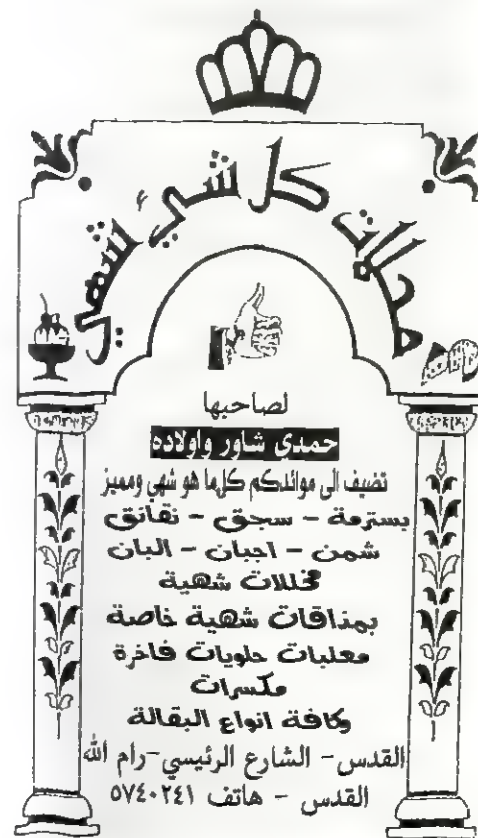 محلات كل شيء شهي
لصاحبها
حمدي شاور واولاده
تضيف الى موائدكم كلما هو شهي ومميز
بسترمة - سجق - نقانق
شمن - اجبان - البان
مخللات شهية
بمذاقات شهية خاصة
معلبات حلويات فاخرة
مكسرات
وكافة انواع البقالة
القدس - الشارع الرئيسي - رام الله
القدس - هاتف ٥٧٤٠٢٤١